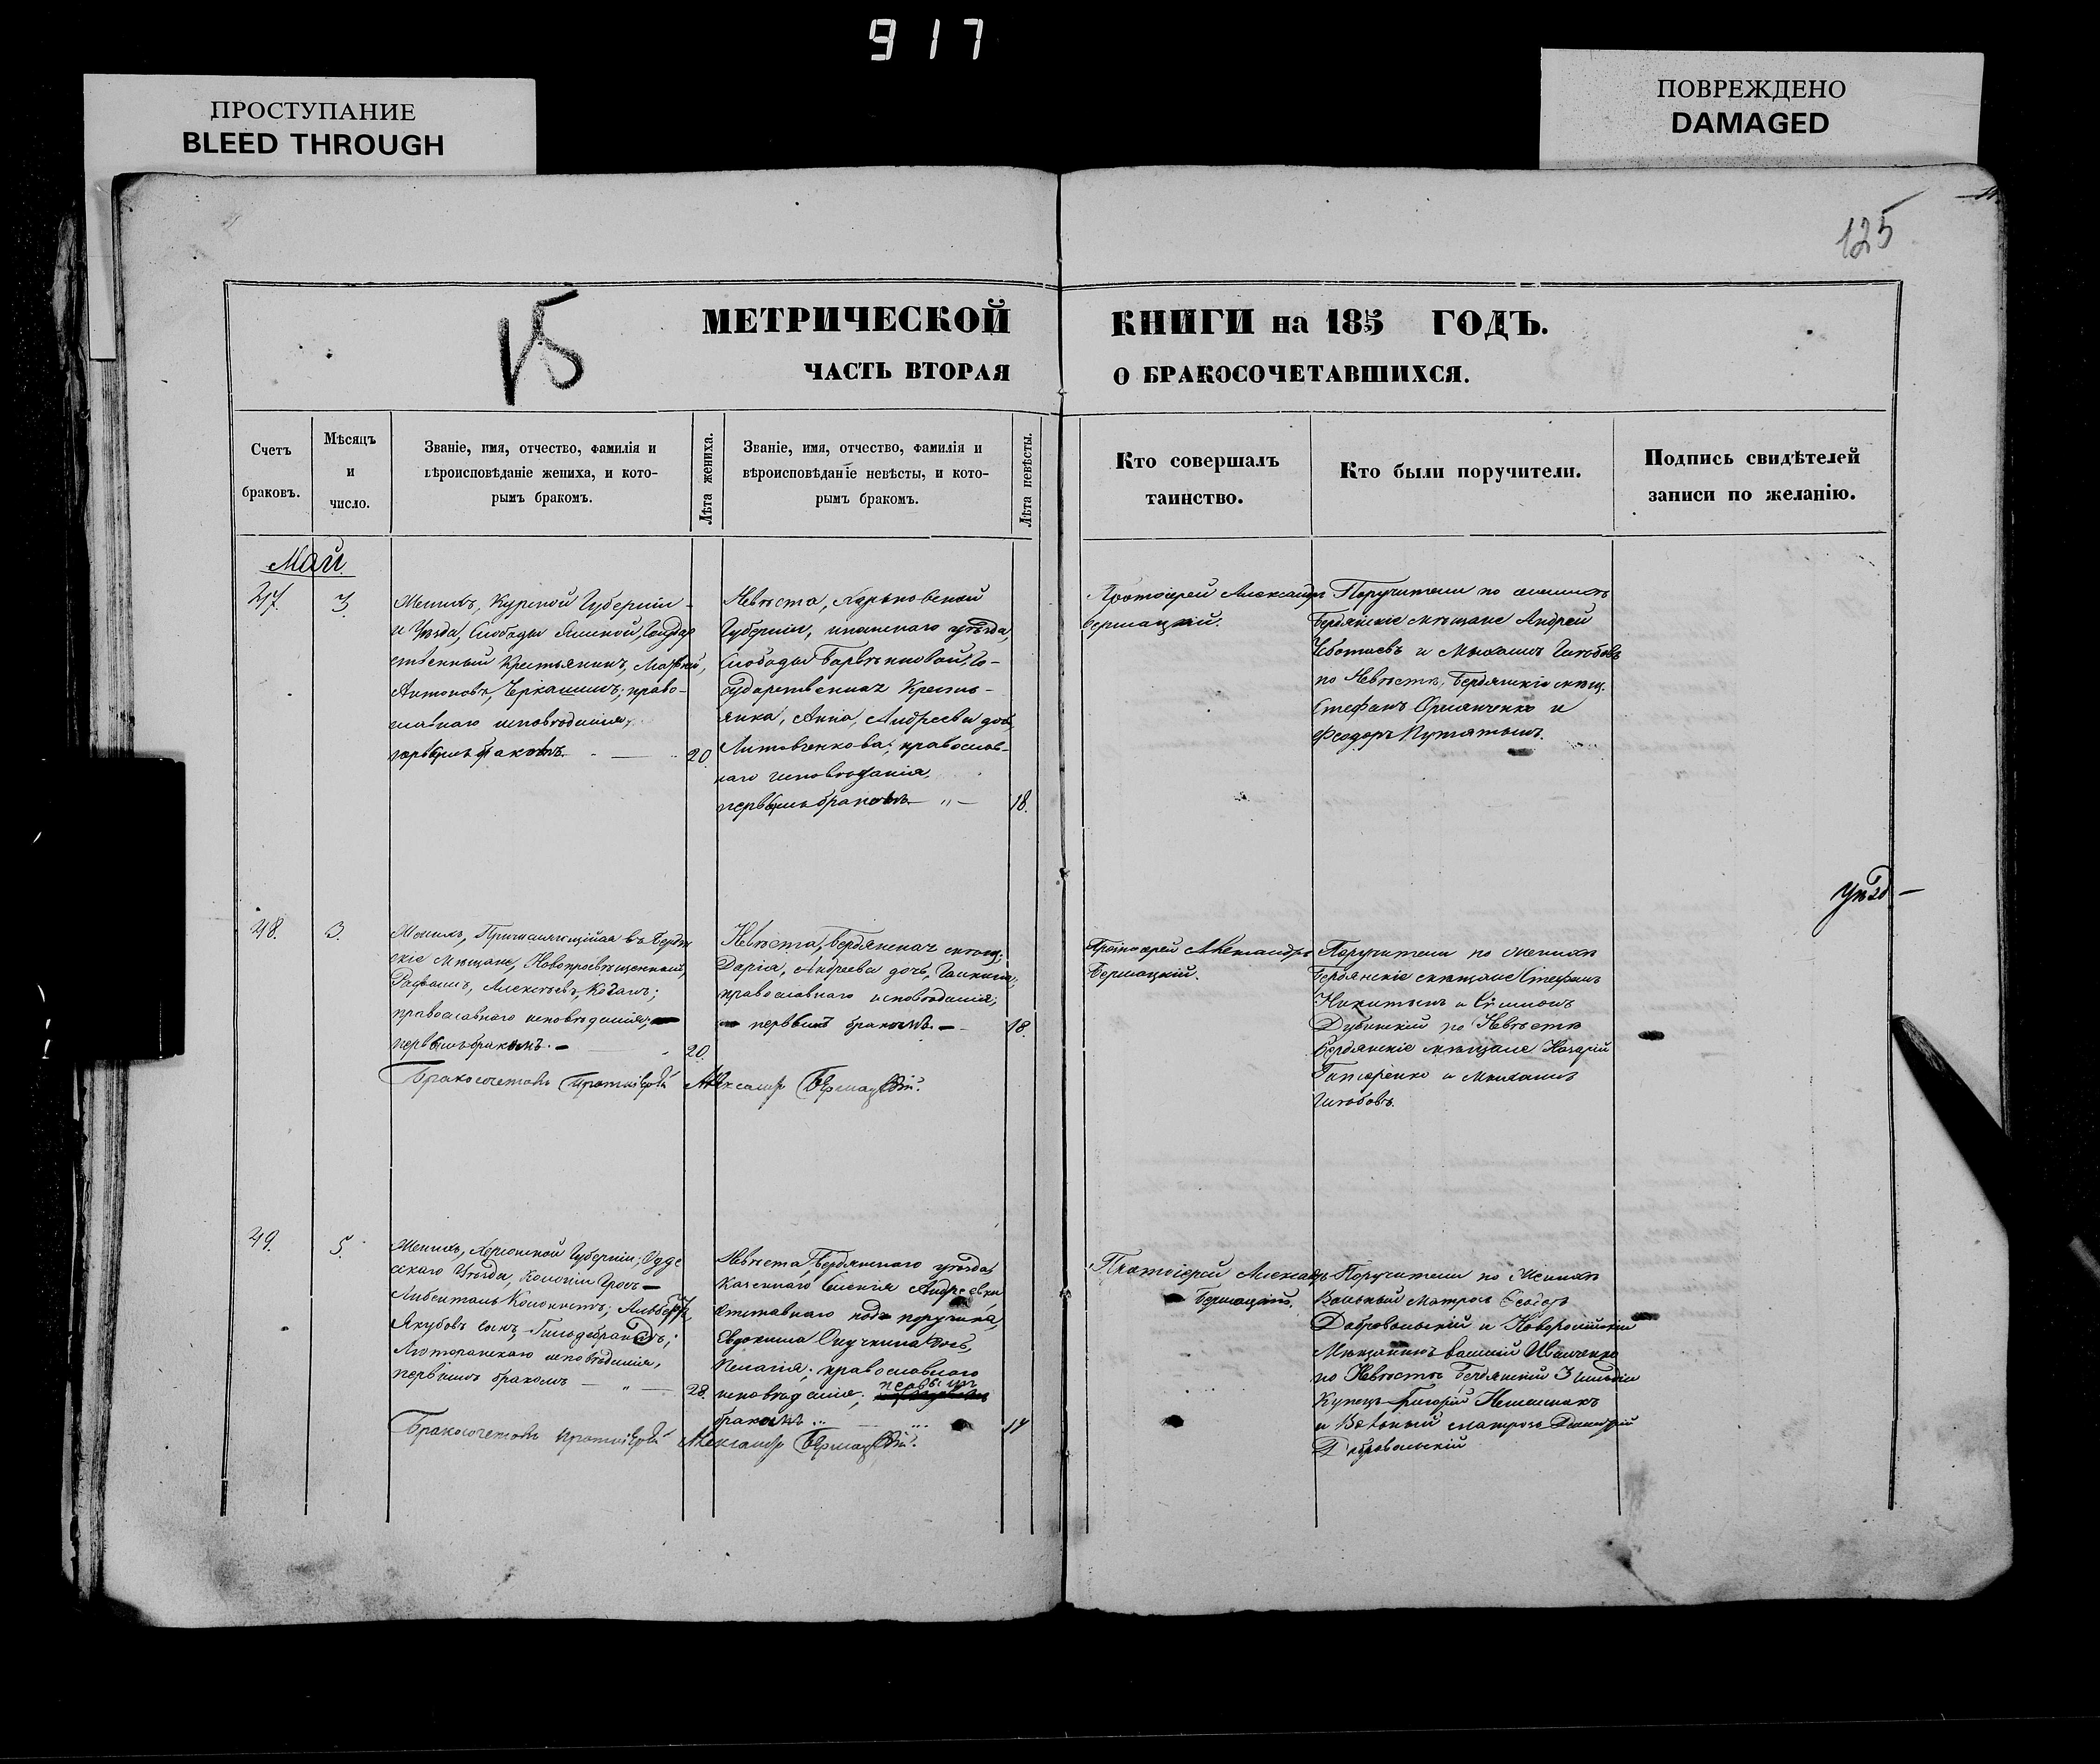 917
ПРОСТУПАНИЕ
BLEED THROUGH
ПОВРЕЖДЕНО
DAMAGED
125
15
МЕТРИЧЕСКОЙ
ЧАСТЬ ВТОРАЯ
КНИГИ на 185 ГОДЪ.
О БРАКОСОЧЕТАВШИХСЯ.
Счетъ
браковъ.
Мѣсяцъ
и
число.
Званіе, имя, отчество, фамилія и
вѣроисповѣданіе жениха, и кото-
рымъ бракомъ.
Лѣта жениха.
Званіе, имя, отчество, фамилія и
вѣроисповѣданіе невѣсты, и кото-
рымъ бракомъ.
Лѣта невѣсты.
Кто совершалъ
таинство.
Кто были поручители.
Подпись свидѣтелей
записи по желанію.
Май
47.
3.
Женихъ, Курской Губерніи
и Уѣзда, Слободы Ямской, Государ
ственный Крестьянинъ,
Антоновъ, Черкашинъ; право-
славнаго исповѣданія,
первымъ бракомъ.
20.
Невѣста, Харьковской
Губерніи, уѣзда,
Слободы Барвѣнковой, Го-
сударственная Кресть-
янка, Анна, Андреева дочь,
Литовченкова; православ-
наго исповѣданія,
первымъ бракомъ.
18.
Протоіерей Александръ
Бершацкій.
Поручители по женихѣ
Бердянскіе мѣщане Андрей
и Михаилъ
по Невѣстѣ, Бердянскіе мѣщ.
Стефанъ и
Феодоръ Путятинъ.
48.
3.
Женихъ, въ Бердян
скіе Мѣщане, Новопросвѣщенный,
Алексѣевъ,
православнаго исповѣданія;
первымъ бракомъ.
20.
Невѣста, Бердянская мѣщ.
Дарія, Андреева дочь,
православнаго исповѣданія;
первымъ бракомъ.
18.
Бракосочеталъ Протоіерей Александр Бершацкій.
Протоіерей Александръ
Бершацкій.
Поручители по женихѣ
Бердянскіе мѣщане Стефанъ
Никитинъ и
Дубинскій по Невѣстѣ
Бердянскіе мѣщане Назарій
и Михаилъ
49.
5.
Женихъ, Херсонской Губерніи, Одде
скаго Уѣзда, Колоніи Грос-
Либенталь Колонистъ; Альбертъ
Якубовъ сынъ Гильдебрандтъ;
Лютеранскаго исповѣданія,
первымъ бракомъ
28.
Невѣста, Бердянскаго уѣзда
Казеннаго Селенія Андреевки
отставнаго подпоручика,
дочь,
Пелагія; православнаго
исповѣданія; первымъ
бракомъ
17
Бракосочеталъ Протоіерей Александр Бершацкій.
Протоіерей Александръ
Бершацкій.
Поручители по Женихѣ
Вольный Матросъ Феодоръ
Добровольскій и Новоросійскій
Мѣщанинъ
по Невѣстѣ Бердянскій 3 гильдіи
Купецъ Григорій
и Вольный матросъ Димитрій
Добровольскій